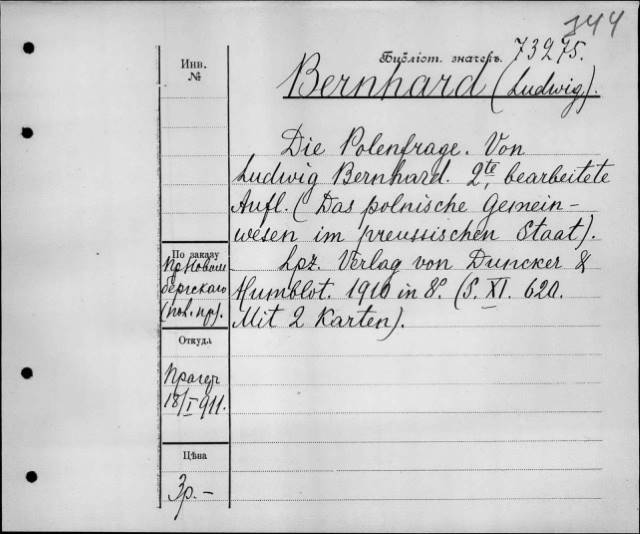 344
Библіот. значекъ. 73275.
Инв.
№
Bernhard (Ludwig).
Die Polenfrage. Von
Ludwig Bernhard. 2te, bearbeitete
Aufl. (Das polnische Gemein-
wesen im preussischen Staat).
Lpz. Verlag von Duncker &
Humblot. 1910 in 8º. (S. XI. 620.
Mit 2 Karten).
По заказу
бергскаго
Откуда
Прагер
18/I 911.
Цѣна
3р.-